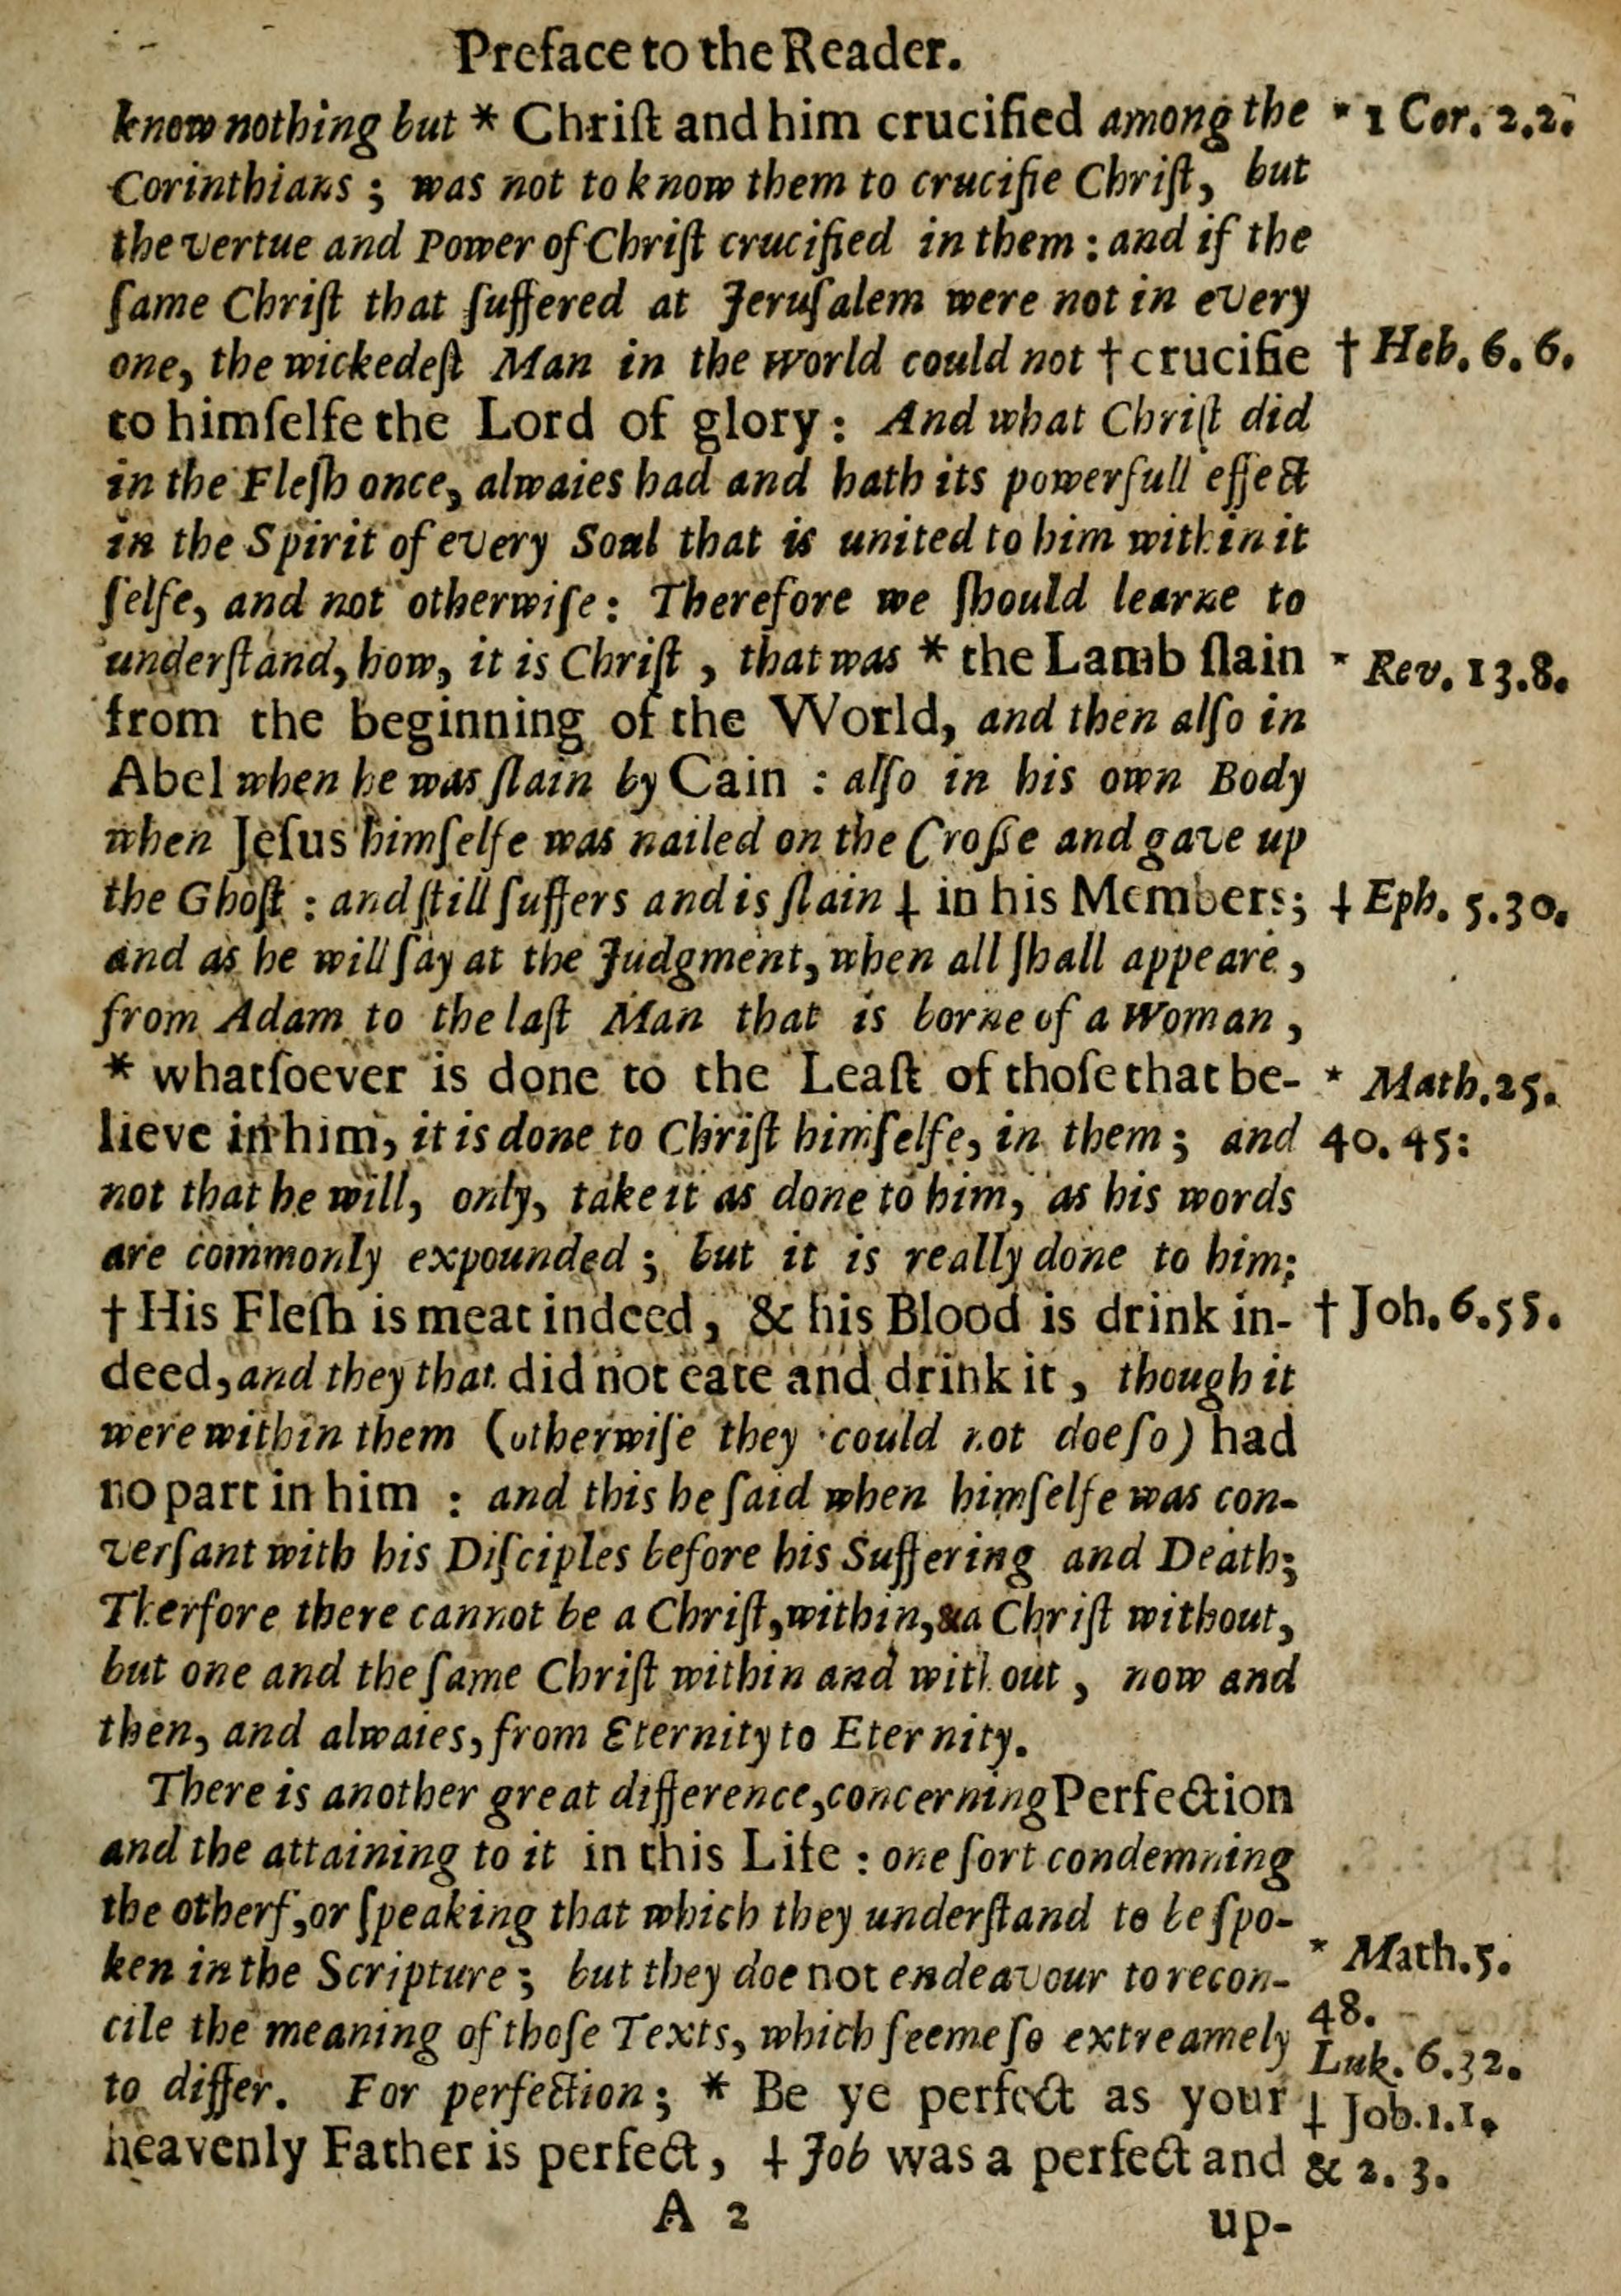 Preface to the Reader.
know nothing but * Chriſt and him crucified among the
* 1 Cor. 2.2.
Corinthians ; was not to know them to crucifie Chriſt, but
the vertue and Power of Chriſt crucified in them : and if the
ſame Chriſt that ſuffered at Jeruſalem were not in every
one, the wickedeſt Man in the World could not † crucifie
† Heb. 6. 6.
to himſelfe the Lord of glory : And what Chriſt did
in the Fleſh once, alwaies had and hath its powerfull effect
in the Spirit of every Soul that is united to him within it
ſelfe, and not otherwiſe : Therefore we ſhould learne to
underſtand, how, it is Chriſt , that was * the Lamb ſlain
* Rev. 13.8.
from the beginning of the World, and then alſo in
Abel when he was ſlain by Cain : alſo in his own Body
when Jeſus himſelfe was nailed on the Croſſe and gave up
the Ghoſt : and ſtill ſuffers and is ſlain ‡ in his Members;
‡ Eph. 5.30.
and as he will ſay at the Judgment, when all ſhall appeare ,
from Adam to the laſt Man that is borne of a Woman ,
* whatſoever is done to the Leaſt of thoſe that be-
* Math. 25.
lieve in him, it is done to Chriſt himſelfe, in them ; and
40. 45:
not that he will, only, take it as done to him, as his words
are commonly expounded ; but it is really done to him;
† His Fleſh is meat indeed , & his Blood is drink in-
† Joh. 6.55.
deed, and they that did not eate and drink it , though it
were within them (otherwiſe they could not doe ſo) had
no part in him : and this he ſaid when himſelfe was con-
verſant with his Diſciples before his Suffering and Death;
Therfore there cannot be a Chriſt, within, & a Chriſt without,
but one and the ſame Chriſt within and without , now and
then, and alwaies, from Eternity to Eternity.
There is another great difference, concerning Perfection
and the attaining to it in this Life : one ſort condemning
the otherſ, or ſpeaking that which they underſtand to be ſpo-
ken in the Scripture ; but they doe not endeavour to recon-
* Math. 5.
cile the meaning of thoſe Texts, which ſeeme ſo extreamely
48.
Luk. 6.32.
to differ. For perfection ; * Be ye perfect as your
‡ Job. 1.1.
heavenly Father is perfect , ‡ Job was a perfect and
& 2. 3.
A 2
up-